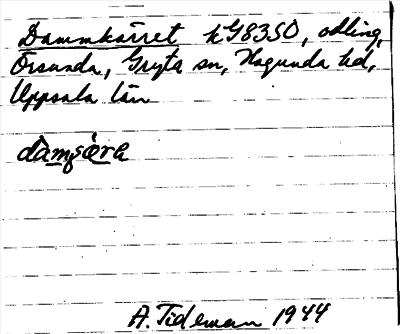 Dammkärret kG8350, odling,
Örsunda, Gryta sn, Hagunda hd,
Uppsala län
A. Tideman 1944